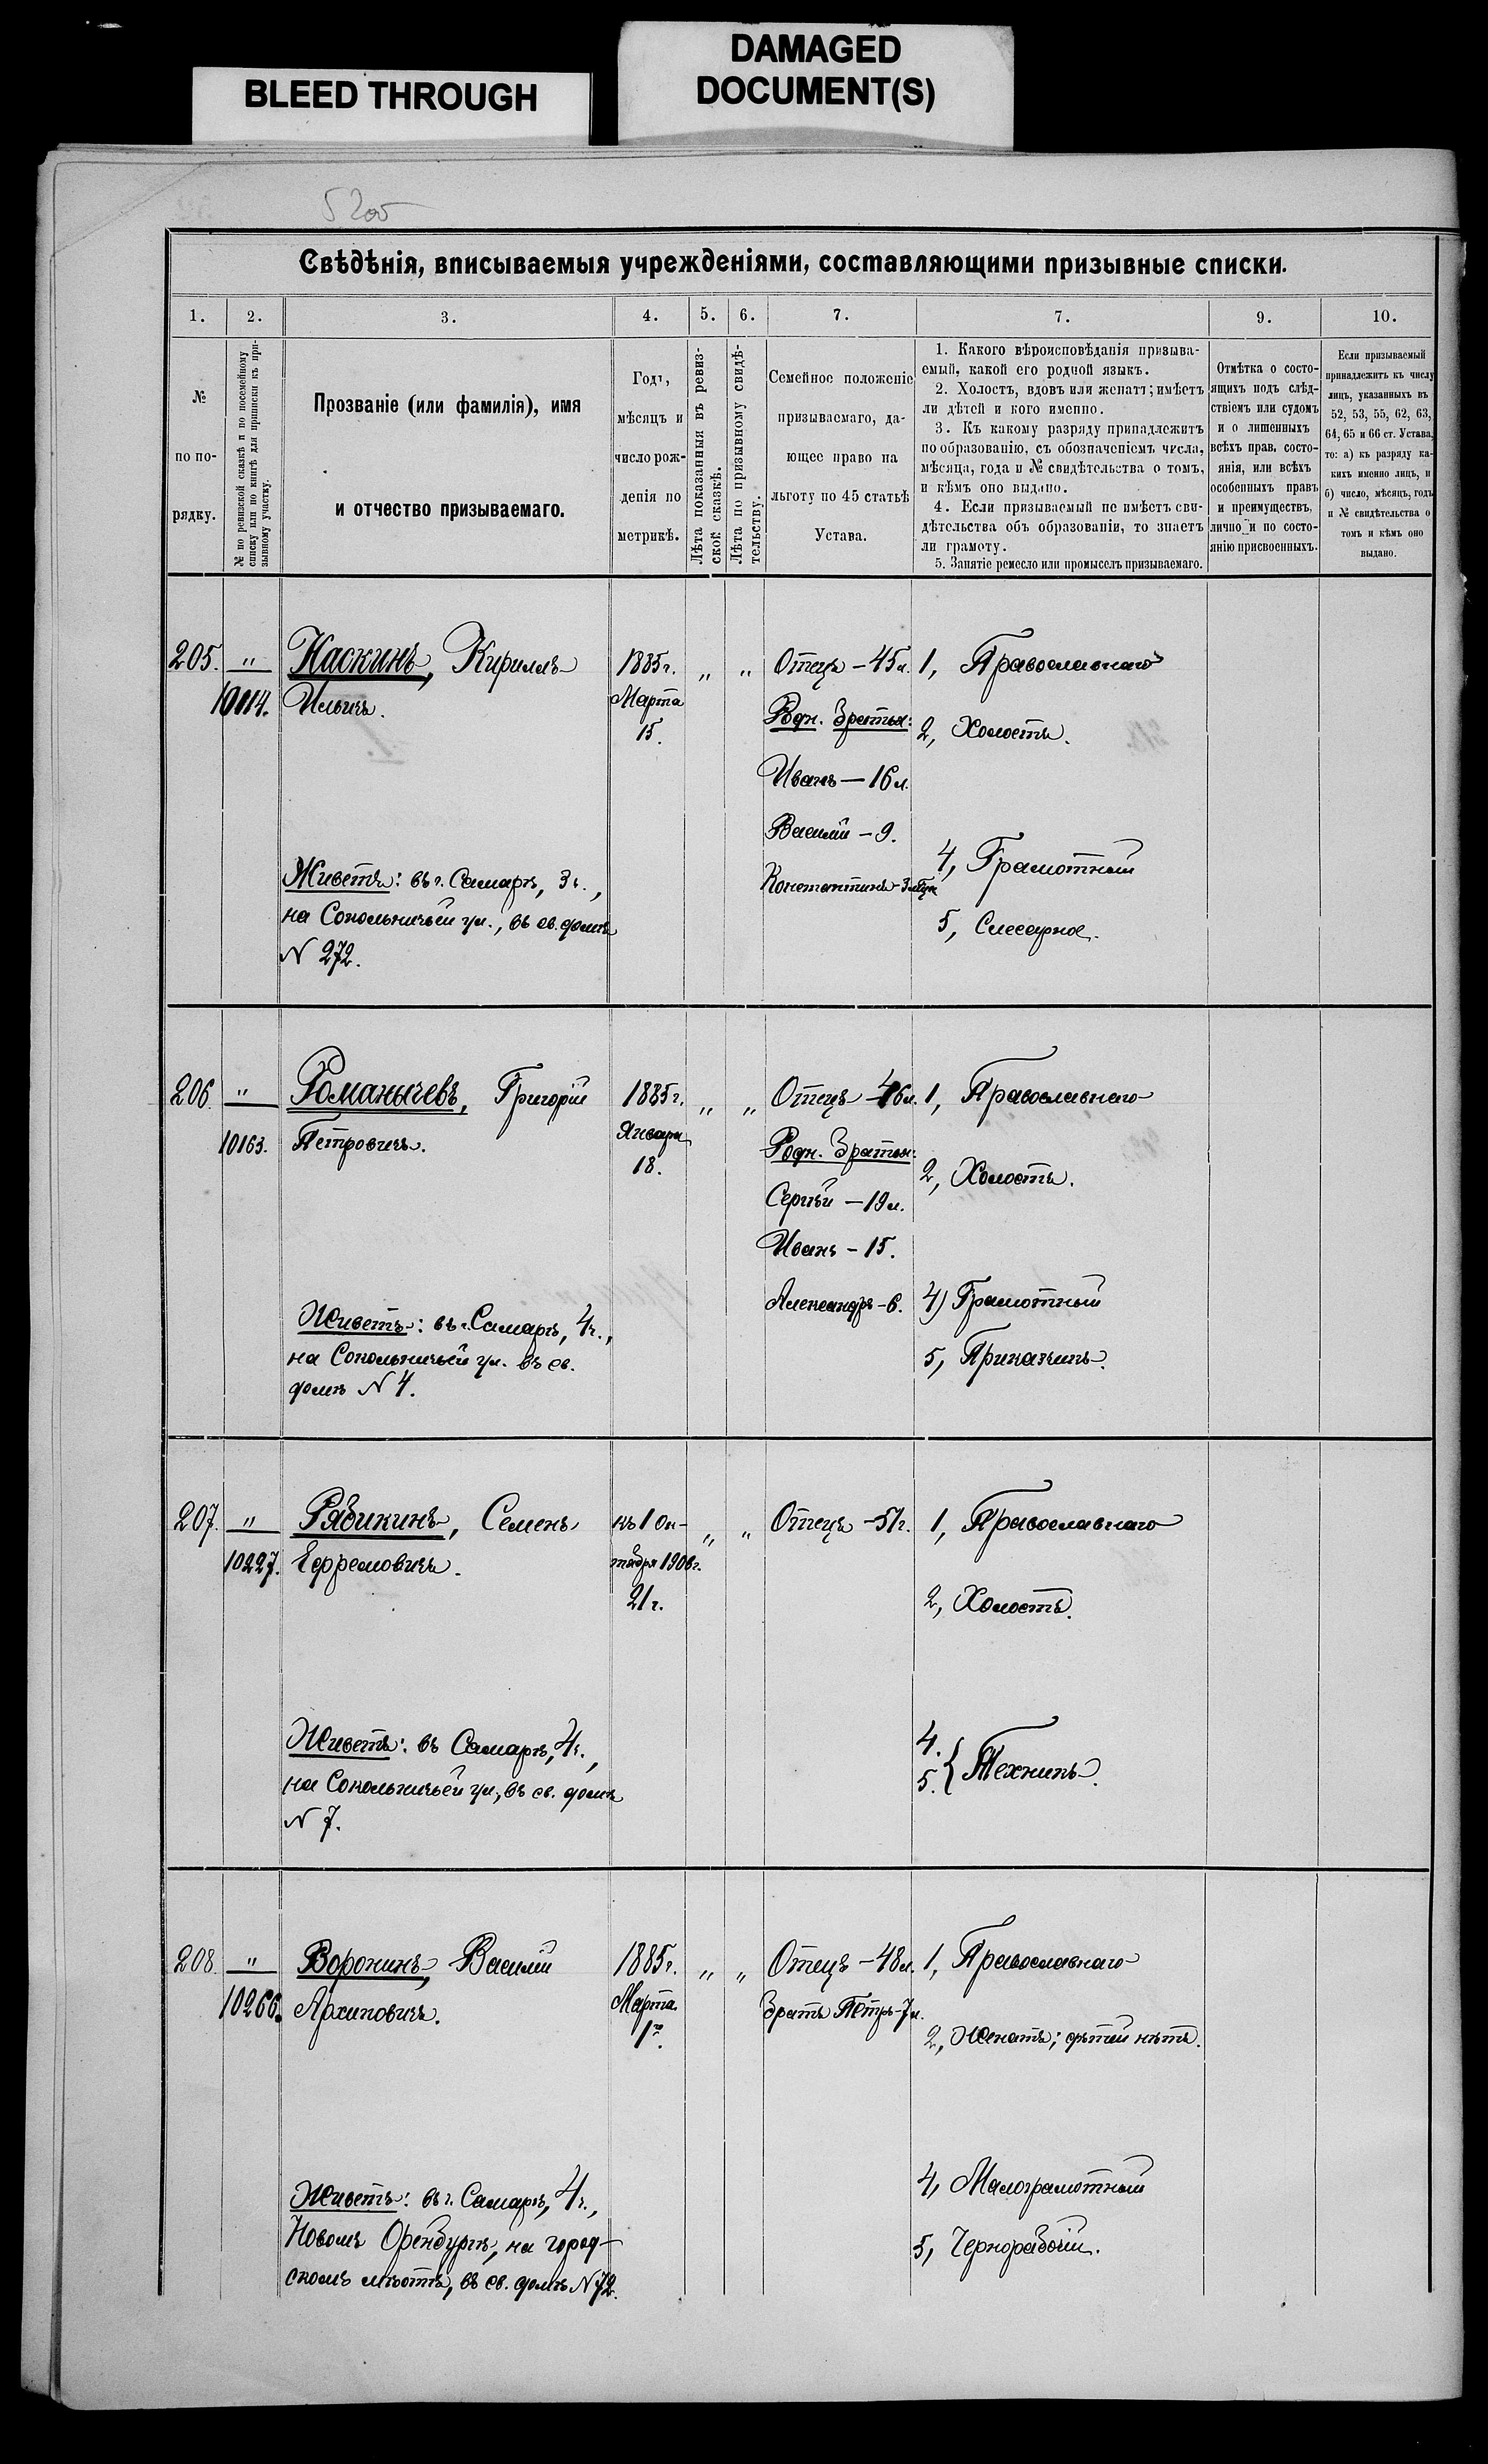 BLEED THROUGH
DAMAGED
DOCUMENT(S)
Свѣдѣнія, вписываемыя учрежденіями, составляющими призывные списки.
1. 2. 3. 4. 5. 6. 7. 7. 9. 10.
№
по по-
рядку.
№ по ревизской сказкѣ и по посемейному
списку или по книгѣ для приписки къ при-
зывному участку.
Прозваніе (или фамилія), имя
и отчество призываемаго.
Годъ,
мѣсяцъ и
число рож-
денія по
метрикѣ.
Лѣта показанныя въ ревиз-
ской сказкѣ.
Лѣта по призывному свидѣ-
тельству.
Семейное положеніе
призываемаго, да-
ющее право на
льготу по 45 статьѣ
Устава.
1. Какого вѣроисповѣданія призыва-
емый, какой его родной языкъ.
2. Холостъ, вдовъ или женатъ; имѣетъ
ли дѣтей и кого именно.
3. Къ какому разряду принадлежитъ
по образованію, съ обозначеніемъ числа,
мѣсяца, года и № свидѣтельства о томъ,
и кѣмъ оно выдано.
4. Если призываемый не имѣетъ сви-
дѣтельства объ образованіи, то знаетъ
ли грамоту.
5. Занятіе ремесло или промыселъ призываемаго.
Отмѣтка о состо-
ящихъ подъ слѣд-
ствіемъ или судомъ
и о лишенныхъ
всѣхъ прав. состо-
янія, или всѣхъ
особенныхъ правъ
и преимуществъ,
лично и по состо-
янію присвоенныхъ.
Если призываемый
принадлежитъ къ числу
лицъ, указанныхъ въ
52, 53, 55, 62, 63,
64, 65 и 66 ст. Устава,
то: а) къ разряду ка-
кихъ именно лицъ, и
б) число, мѣсяцъ, годъ
и № свидѣтельства о
томъ и кѣмъ оно
выдано.
205. " Каскинъ, Кириллъ 1885 г. " " Отецъ – 45 л. 1, Православнаго
10114. Ильичъ. Марта Родн. братья:
15. 2, Холостъ.
Иванъ – 16 л.
Василій – 9.
4, Грамотный
Живетъ: въ г. Самарѣ, 3 ч., Константинъ – 3
на Сокольничьей ул., въ св. домѣ 5, Слесарное.
N 272.
206. " Романычевъ, Григорій 1885 г. " " Отецъ – 46 л. 1, Православнаго
10163. Петровичъ. Января Родн. братья:
18. 2, Холостъ.
Сергѣй – 19 л.
Иванъ – 15.
Александръ – 6. 4) Грамотный
Живетъ: въ г. Самарѣ, 4 ч.,
на Сокольничьей ул. въ св. 5, Приказчикъ.
домѣ N 4.
207. " Рябикинъ, Семенъ къ 1 Ок- " " Отецъ – 51 г. 1, Православнаго
10227. Ефремовичъ. тября 1906 г.
21 г. 2, Холостъ.
Живетъ: въ Самарѣ, 4 ч., 4.
на Сокольничьей ул., въ св. домѣ 5. { Техникъ.
N 7.
208. " Воронинъ, Василій 1885 г. " " Отецъ – 48 л. 1, Православнаго
10266. Архиповичъ. Марта Братъ Петръ – 7 л.
1го. 2, Женатъ; дѣтей нѣтъ.
Живетъ: въ г. Самарѣ, 4 ч., 4, Малограмотный
Новомъ Оренбургѣ, на город-
скомъ мѣстѣ, въ св. домѣ N 72. 5, Чернорабочій.